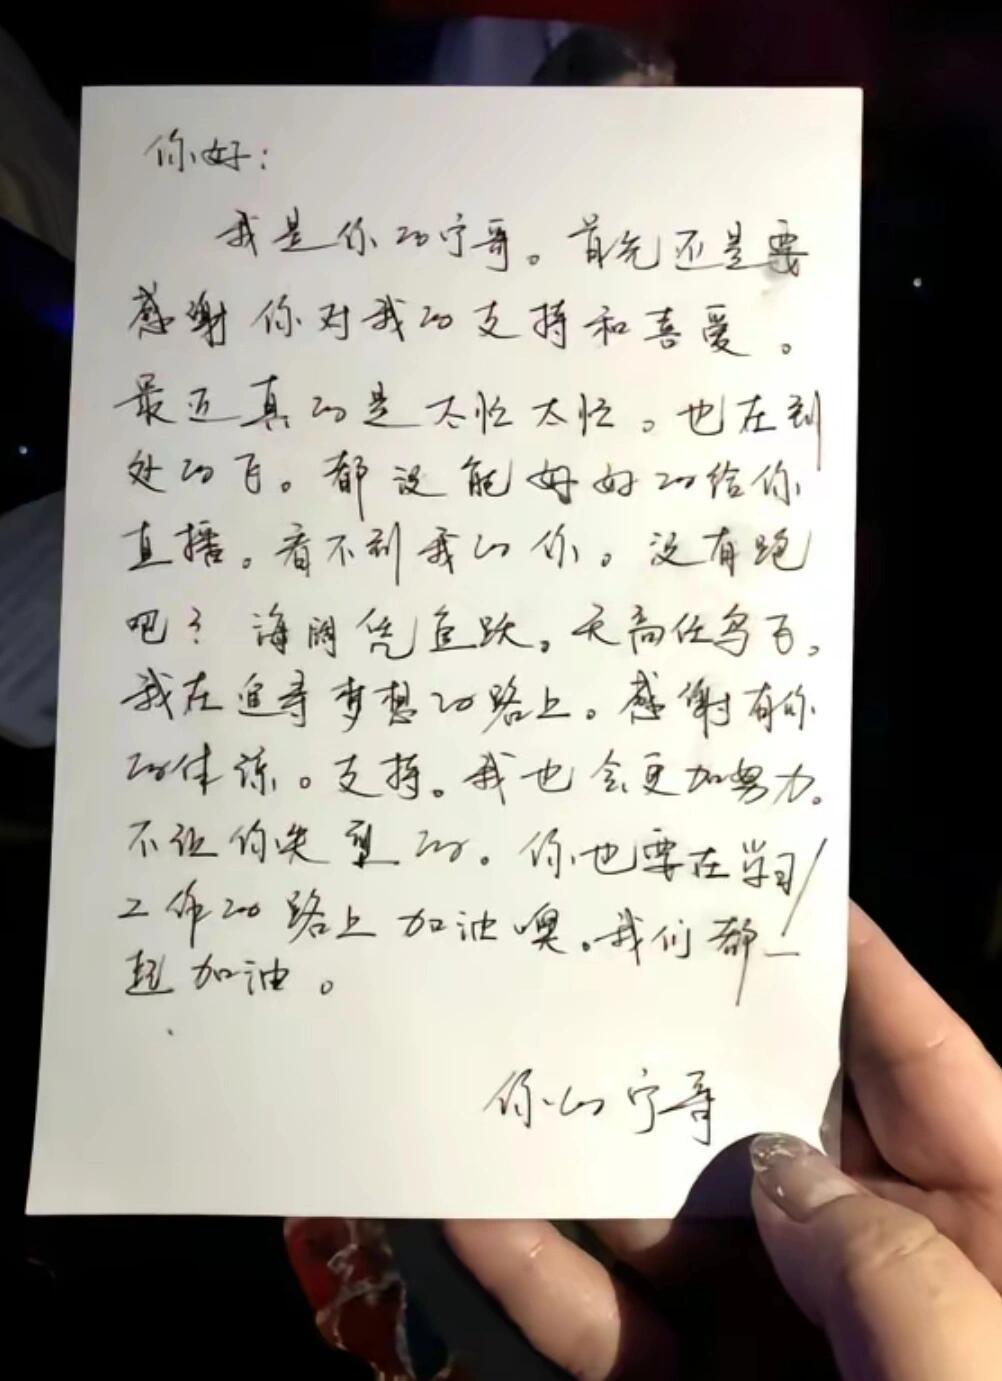 你好：
我是你的宁哥。首先还是要
感谢你对我的支持和喜爱。
最近真的是太忙太忙。也在到
处的飞。都没能好好的给你
直播。看不到我的你。没有跑
吧？海阔凭鱼跃。天高任鸟飞。
我在追寻梦想的路上。感谢有你
的体谅。支持。我也会更加努力。
不让你失望的。你也要在学习
工作的路上加油噢。我们都一
起加油。
你的宁哥